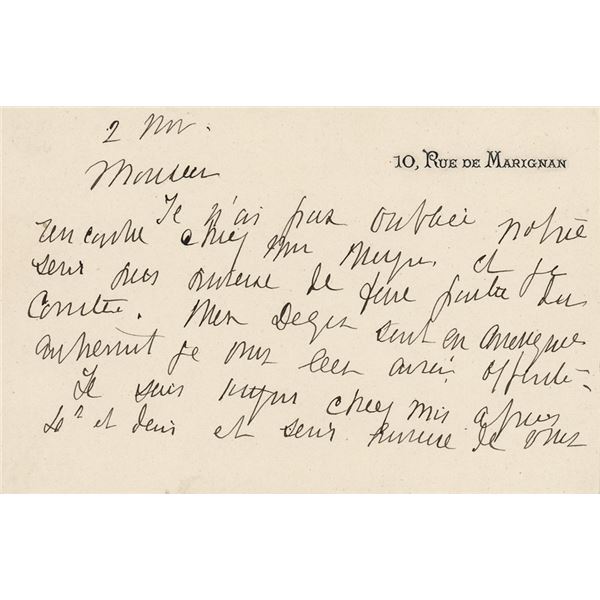 2 Nov.
10, RUE DE MARIGNAN
Monsieur
Je n'ai pas oublié notre
rencontre chez Mr et je
serai très heureuse de faire partie du
Comité. Mes Degas sont en Amérique
autrement je vous les aurai
Je suis toujours chez moi après
4 h et demi et serai heureuse de vous